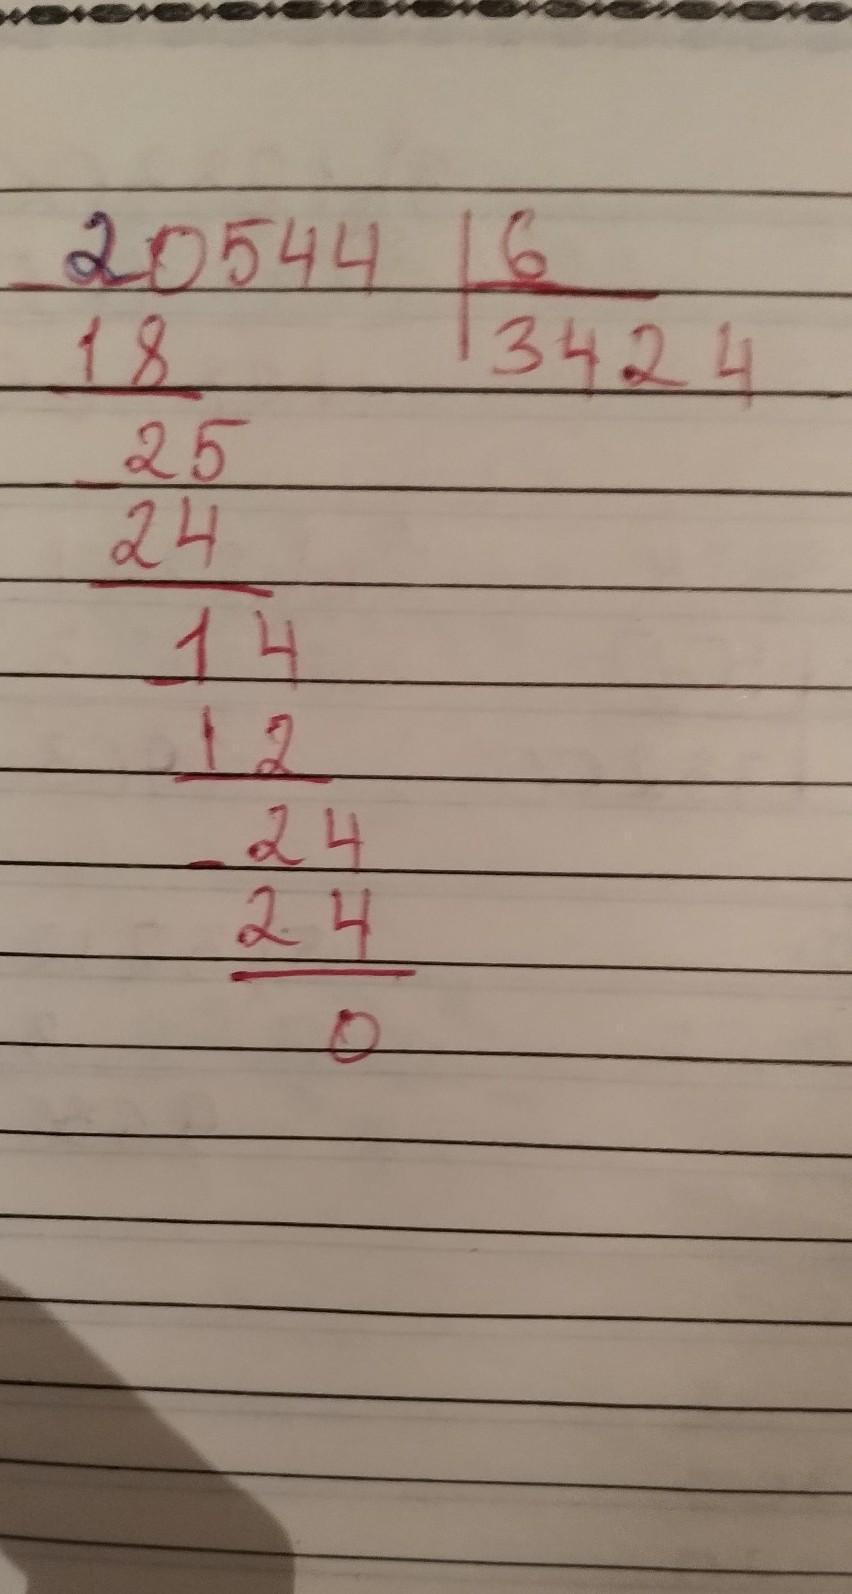 20544 6
18 3424
25
24
14
12
24
24
0